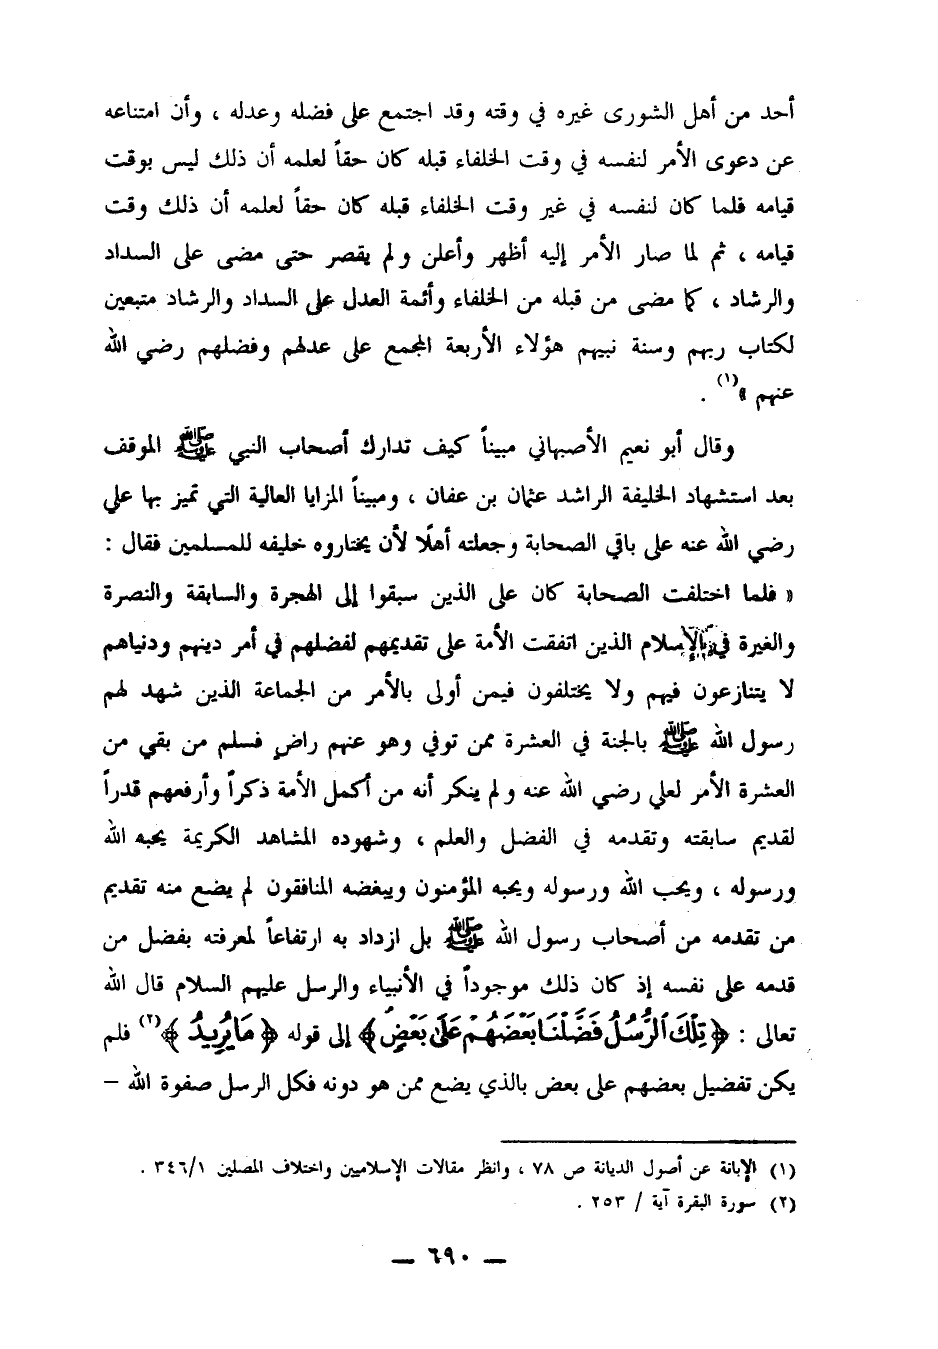 أحد من أهل الشورى غيره في وقته وقد اجتمع على فضله وعدله ، وأن امتناعه
عن دعوى الأمر لنفسه في وقت الخلفاء قبله كان حقاً لعلمه أن ذلك ليس بوقت
قيامه فلما كان لنفسه في غير وقت الخلفاء قبله كان حقاً لعلمه أن ذلك وقت
قيامه ، ثم لما صار الأمر إليه أظهر وأعلن ولم يقصر حتى مضى على السداد
والرشاد ، كما مضى من قبله من الخلفاء وأئمة العدل على السداد والرشاد متبعين
لكتاب ربهم وسنة نبيهم هؤلاء الأربعة المجمع على عدلهم وفضلهم رضي الله
عنهم »(١) .
وقال أبو نعيم الأصبهاني مبيناً كيف تدارك أصحاب النبي ﷺ الموقف
بعد استشهاد الخليفة الراشد عثمان بن عفان ، ومبيناً المزايا العالية التي تميز بها علي
رضي الله عنه على باقي الصحابة وجعلته أهلًا لأن يختاروه خليفه للمسلمين فقال :
« فلما اختلفت الصحابة كان على الذين سبقوا إلى الهجرة والسابقة والنصرة
والغيرة في الإسلام الذين اتفقت الأمة على تقديمهم لفضلهم في أمر دينهم ودنياهم
لا يتنازعون فيهم ولا يختلفون فيمن أولى بالأمر من الجماعة الذين شهد لهم
رسول الله ﷺ بالجنة في العشرة ممن توفي وهو عنهم راضٍ فسلم من بقي من
العشرة الأمر لعلي رضي الله عنه ولم ينكر أنه من أكمل الأمة ذكراً وأرفعهم قدراً
لقديم سابقته وتقدمه في الفضل والعلم ، وشهوده المشاهد الكريمة يحبه الله
ورسوله ، ويحب الله ورسوله ويحبه المؤمنون ويبغضه المنافقون لم يضع منه تقديم
من تقدمه من أصحاب رسول الله ﷺ بل ازداد به ارتفاعاً لمعرفته بفضل من
قدمه على نفسه إذ كان ذلك موجوداً في الأنبياء والرسل عليهم السلام قال الله
تعالى : ﴿ تِلْكَ ٱلرُّسُلُ فَضَّلْنَا بَعْضَهُمْ عَلَىٰ بَعْضٍ ﴾ إلى قوله ﴿ مَا يُرِيدُ ﴾(٢) فلم
يكن تفضيل بعضهم على بعض بالذي يضع ممن هو دونه فكل الرسل صفوة الله –
(١) الإبانة عن أصول الديانة ص ٧٨ ، وانظر مقالات الإسلاميين واختلاف المصلين ٣٤٦/١ .
(٢) سورة البقرة آية / ٢٥٣ .
— ٦٩٠ —